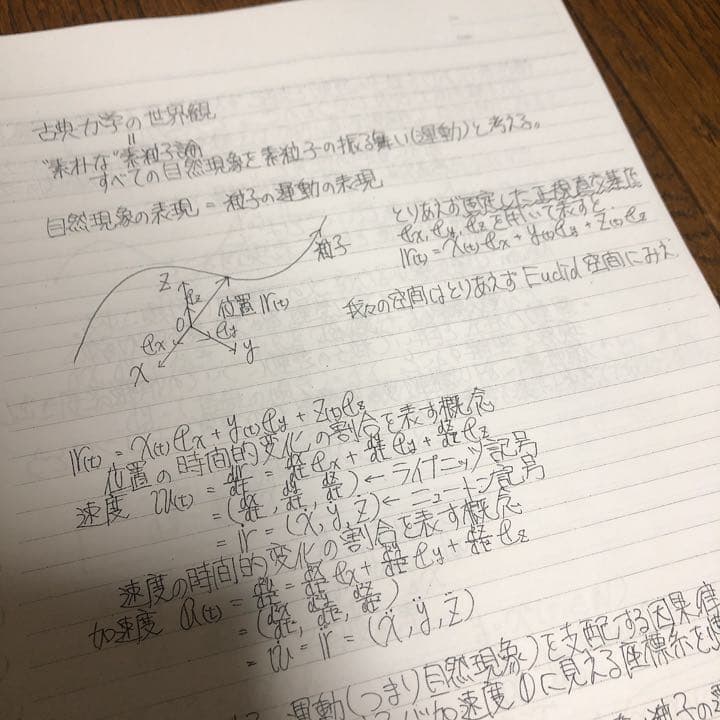 古典力学の世界観
"素朴な"素粒子論
すべての自然現象を素粒子の振る舞い(運動)と考える。
自然現象の表現 = 粒子の運動の表現
とりあえず固定した正規直交基底
ex, ey, ezを用いて表すと
r(t) = x(t)ex + y(t)ey + z(t)ez
我々の空間はとりあえずEuclid空間にみえ
粒子
z
ez
位置 r(t)
O
ey
ex
y
x
r(t) = x(t)ex + y(t)ey + z(t)ez
位置の時間的変化の割合を表す概念
速度 v(t) = dr/dt = dx/dt ex + dy/dt ey + dz/dt ez
= (dx/dt, dy/dt, dz/dt) ← ライプニッツ記号
= ṙ = (ẋ, ẏ, ż) ← ニュートン記号
速度の時間的変化の割合を表す概念
加速度 a(t) = dv/dt = dẋ/dt ex + dẏ/dt ey + dż/dt ez
= (dẋ/dt, dẏ/dt, dż/dt)
= v̇ = r̈ = (ẍ, ÿ, z̈)
運動(つまり自然現象)を支配する因果律
加速度0に見える座標系を
粒子の